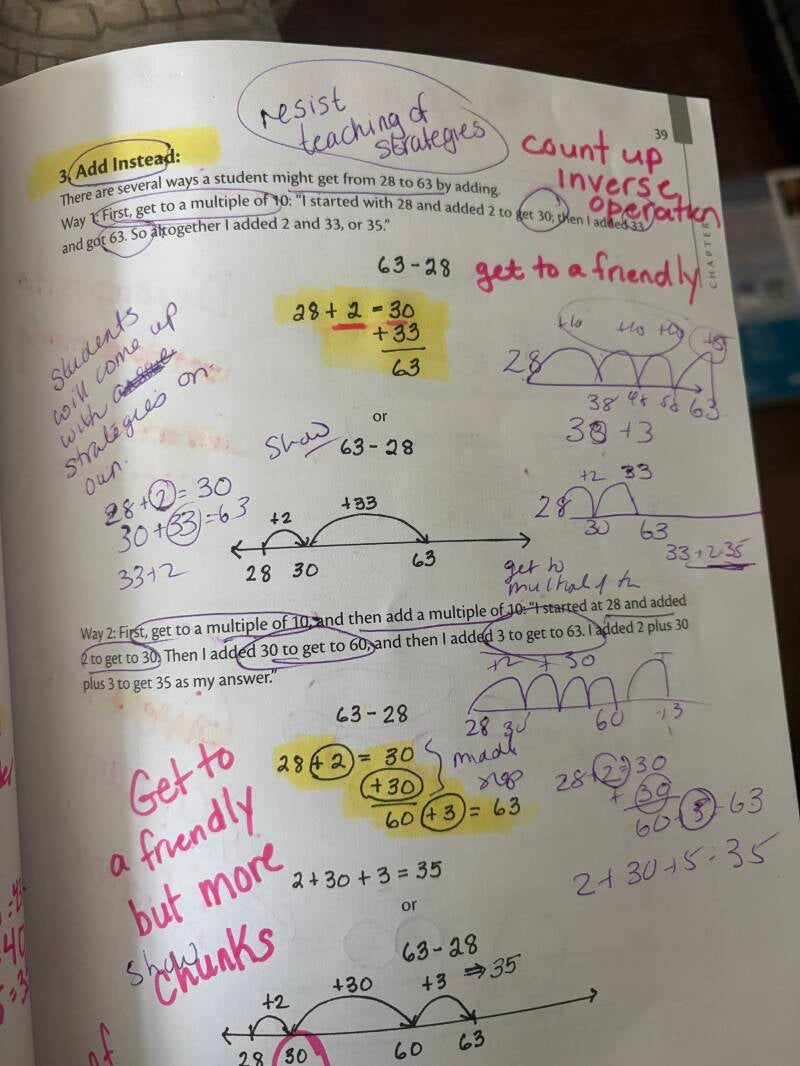 resist
teaching of
strategies
39
CHAPTER
3. Add Instead:
There are several ways a student might get from 28 to 63 by adding.
Way 1: First, get to a multiple of 10: “I started with 28 and added 2 to get 30; then I added 33
and got 63. So altogether I added 2 and 33, or 35.”
count up
inverse
operation
63 – 28
get to a friendly
28 + 2 = 30
+ 33
63
students
will come up
with
strategies on
own.
28 + 2 = 30
30 + 33 = 63
33 + 2
+10 +10 +10 +5
28
38 48 58 63
+3
or
show
63 – 28
+2 +33
28 30 63
+2 33
28
30 63
33 + 2 = 35
get to
Way 2: First, get to a multiple of 10, and then add a multiple of 10: “I started at 28 and added
2 to get to 30. Then I added 30 to get to 60, and then I added 3 to get to 63. I added 2 plus 30
plus 3 to get 35 as my answer.”
+2 + 30
28 30 60 +3
63 – 28
28 + 2 = 30
+ 30
60 + 3 = 63
made
28 + 2 = 30
+ 30
60 + 3 = 63
2 + 30 + 5 = 35
Get to
a friendly
but more
chunks
2 + 30 + 3 = 35
or
show
63 – 28
⇒ 35
+2 +30 +3
28 30 60 63
of